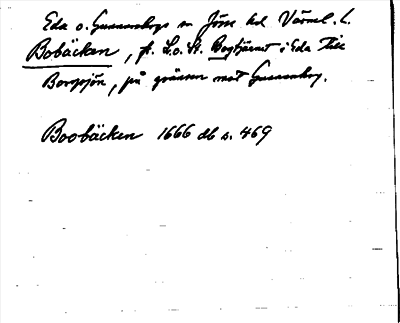 Eda o. Gunnarskogs sn Jösse hd Värml. l.
Bobäcken, fr. L.o. St. Bogtjärnet i Eda till
Borrsjön, på gränsen mot Gunnarskog.
Boobäcken 1666 db s. 469